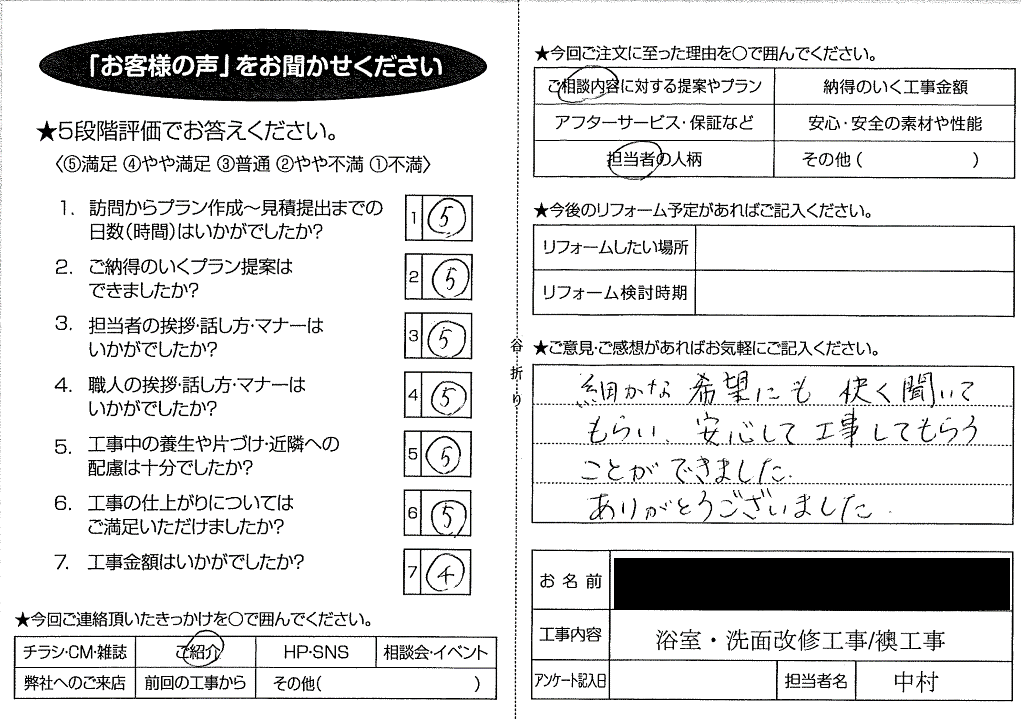 「お客様の声」をお聞かせください
★5段階評価でお答えください。
〈⑤満足 ④やや満足 ③普通 ②やや不満 ①不満〉
1. 訪問からプラン作成～見積提出までの
日数(時間)はいかがでしたか?
1 5
2. ご納得のいくプラン提案は
できましたか?
2 5
3. 担当者の挨拶・話し方・マナーは
いかがでしたか?
3 5
4. 職人の挨拶・話し方・マナーは
いかがでしたか?
4 5
5. 工事中の養生や片づけ・近隣への
配慮は十分でしたか?
5 5
6. 工事の仕上がりについては
ご満足いただけましたか?
6 5
7. 工事金額はいかがでしたか?
7 4
★今回ご連絡頂いたきっかけを○で囲んでください。
チラシ・CM・雑誌 ご紹介 HP・SNS 相談会・イベント
弊社へのご来店 前回の工事から その他( )
谷折り
★今回ご注文に至った理由を○で囲んでください。
ご相談内容に対する提案やプラン 納得のいく工事金額
アフターサービス・保証など 安心・安全の素材や性能
担当者の人柄 その他( )
★今後のリフォーム予定があればご記入ください。
リフォームしたい場所
リフォーム検討時期
★ご意見・ご感想があればお気軽にご記入ください。
細かな希望にも快く聞いて
もらい、安心して工事してもらう
ことができました。
ありがとうございました。
お名前
工事内容 浴室・洗面改修工事/襖工事
アンケート記入日 担当者名 中村